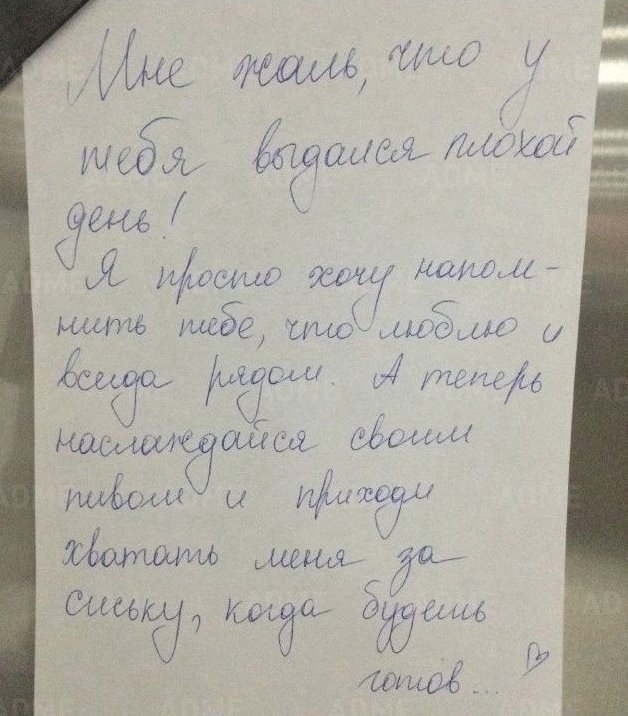 Мне жаль, что у
тебя выдался плохой
день!
Я просто хочу напом-
нить тебе, что люблю и
всегда рядом. А теперь
наслаждайся своим
пивом и приходи
хватать меня за
сиську, когда будешь
готов...